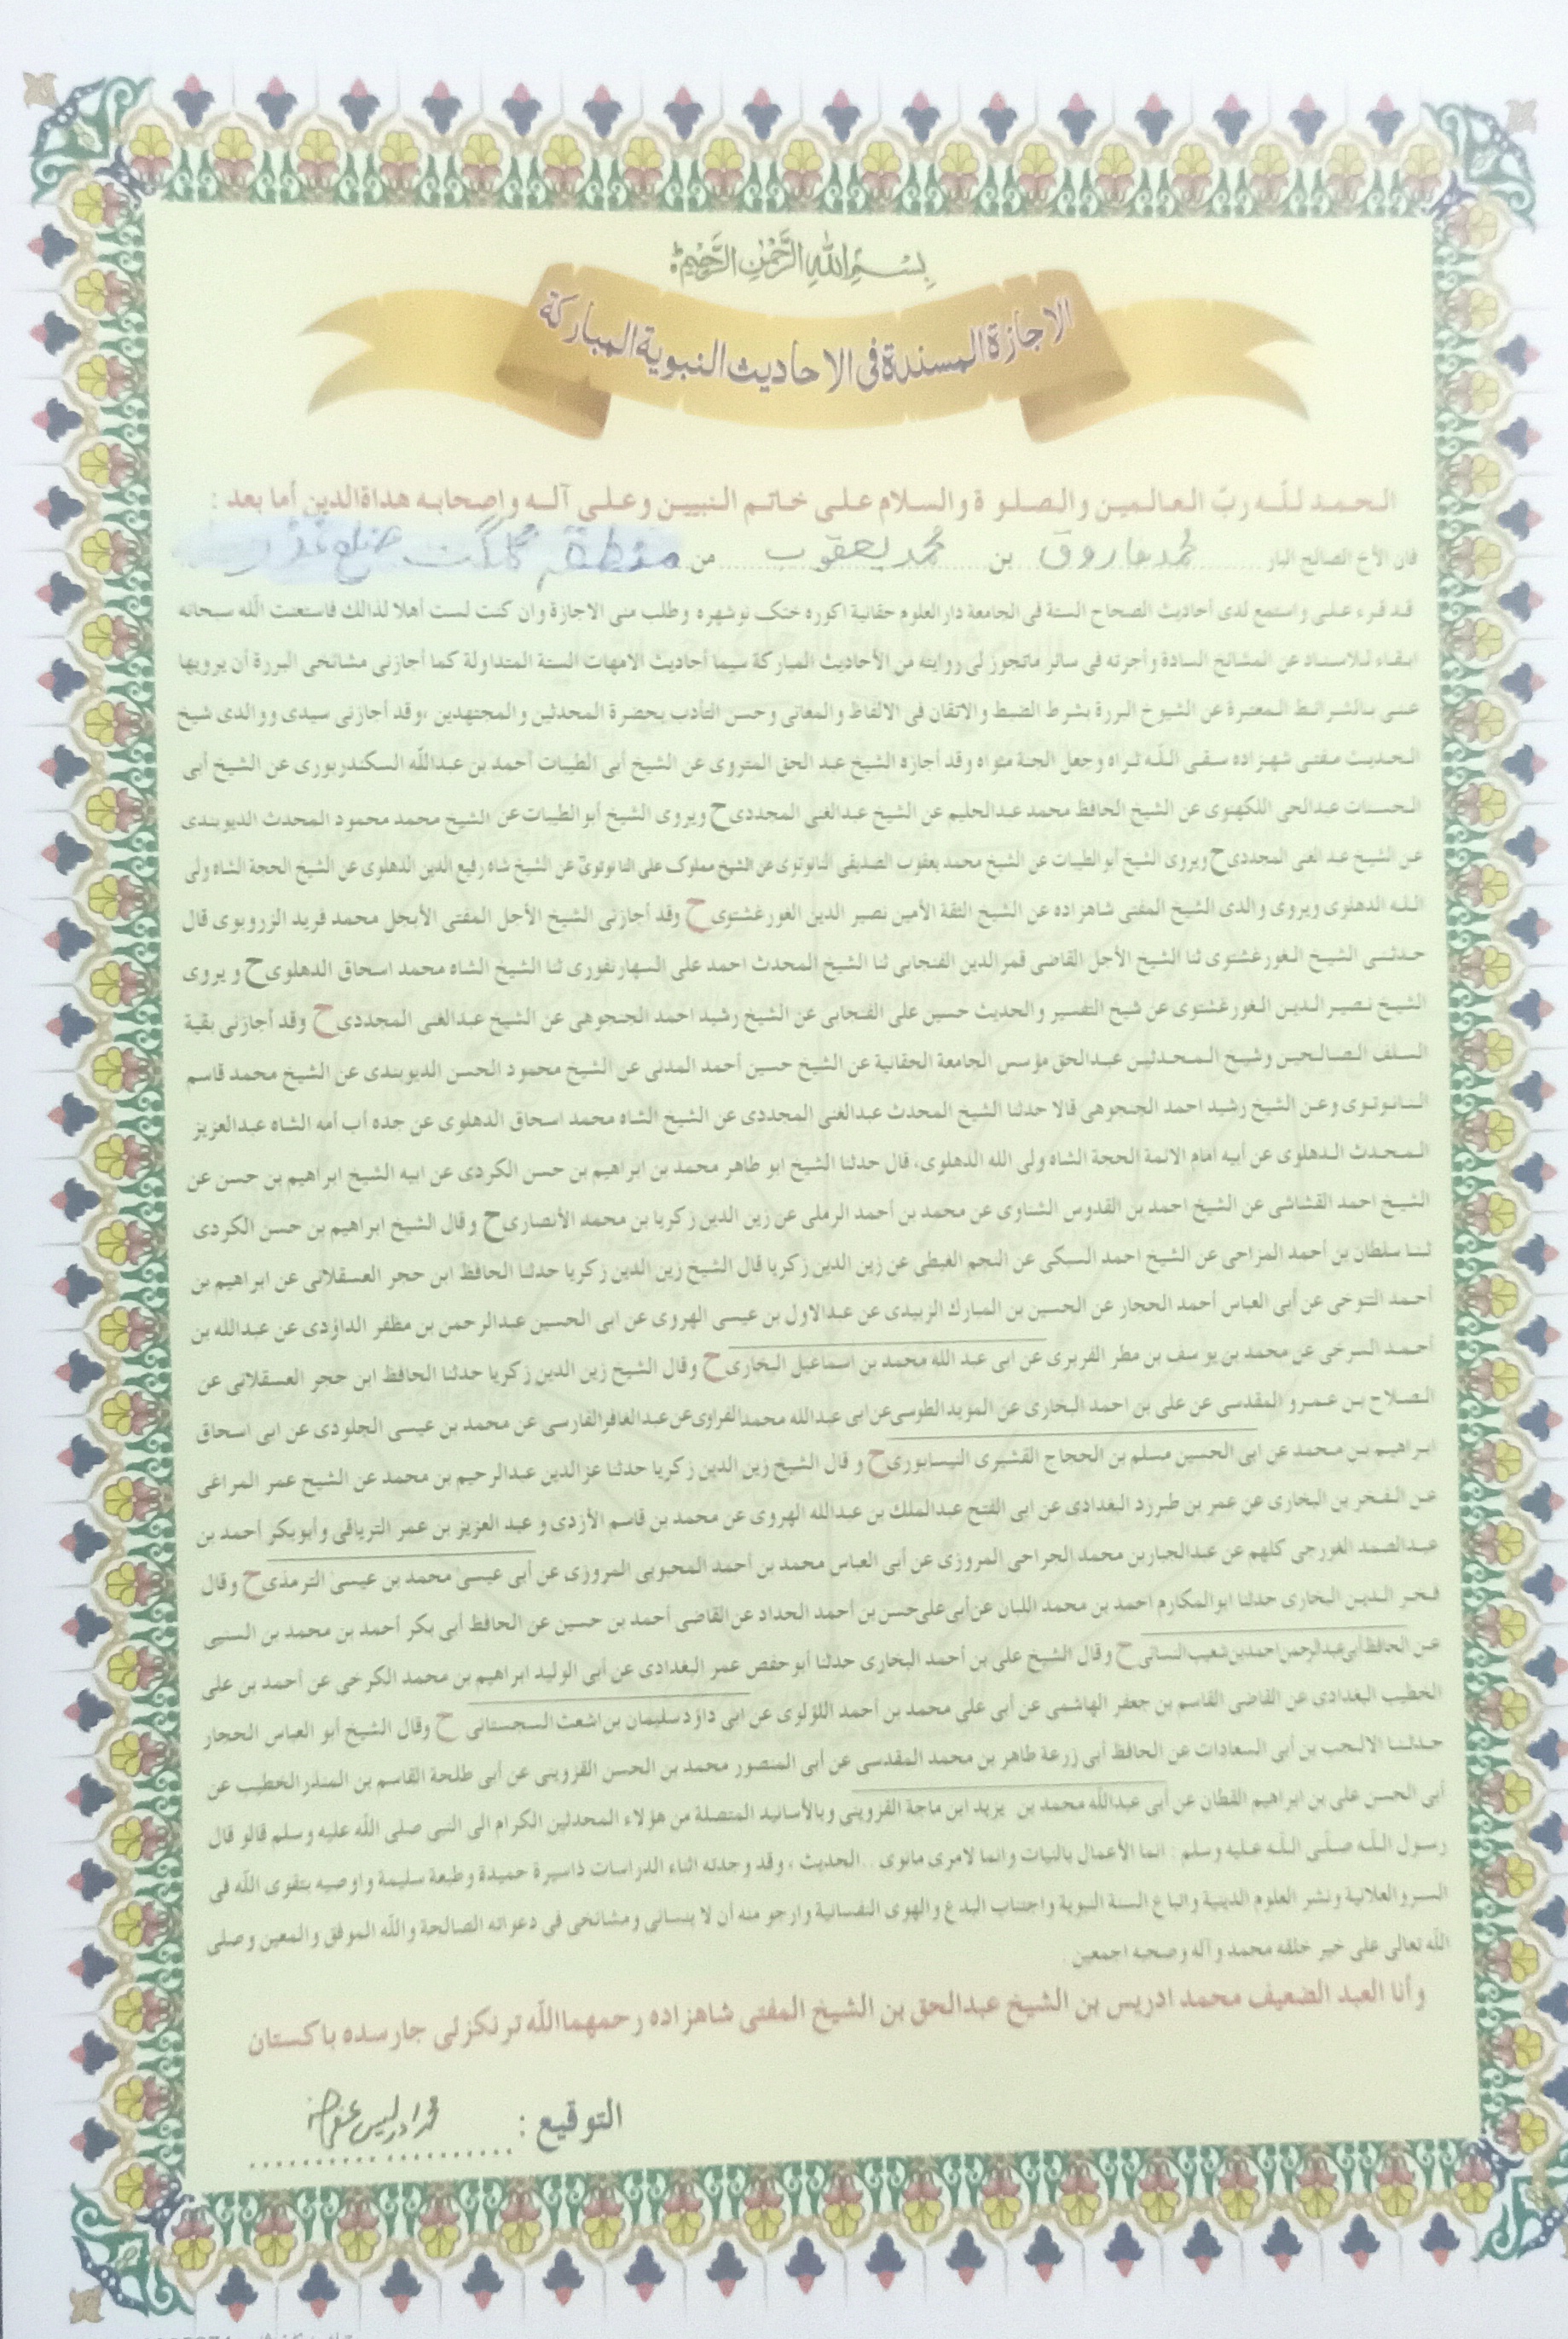 بسم الله الرحمن الرحيم
الاجازة المسندة فى الاحاديث النبوية المباركة
الحمد للّٰه ربّ العالمين والصلوة والسلام على خاتم النبيين وعلى آله واصحابه هداة الدين أما بعد :
فان الأخ الصالح البار محمد فاروق بن محمد يعقوب من منطقة گلگت ضلع غذر
قد قرء على واستمع لدى أحاديث الصحاح الستة فى الجامعة دار العلوم حقانية اكوره ختك نوشهره وطلب منى الاجازة وان كنت لست أهلا لذالك فاستعنت اللّٰه سبحانه
ابقاء للاسناد عن المشائخ السادة وأجزته فى سائر ماتجوز لى روايته من الأحاديث المباركة سيما أحاديث الامهات الستة المتداولة كما أجازنى مشائخى البررة أن يرويها
عنى بالشرائط المعتبرة عن الشيوخ البررة بشرط الضبط والاتقان فى الالفاظ والمعانى وحسن التأدب بحضرة المحدثين والمجتهدين ،وقد أجازنى سيدى ووالدى شيخ
الحديث مفتى شهزاده سقى اللّٰه ثراه وجعل الجنة مثواه وقد أجازه الشيخ عبد الحق المتروى عن الشيخ أبى الطيبات أحمد بن عبداللّٰه السكندربورى عن الشيخ أبى
الحسنات عبدالحى اللكهنوى عن الشيخ الحافظ محمد عبدالحليم عن الشيخ عبدالغنى المجددى ح ويروى الشيخ أبو الطيبات عن الشيخ محمد محمود المحدث الديوبندى
عن الشيخ عبد الغنى المجددى ح ويروى الشيخ أبو الطيبات عن الشيخ محمد يعقوب الصديقى النانوتوى عن الشيخ مملوک على النانوتوى عن الشيخ شاه رفيع الدين الدهلوى عن الشيخ الحجة الشاه ولى
اللّٰه الدهلوى ويروى والدى الشيخ المفتى شاهزاده عن الشيخ الثقة الأمين نصير الدين الغورغشتوى ح وقد أجازنى الشيخ الأجل المفتى الأبجل محمد فريد الزروبوى قال
حدثنى الشيخ الغورغشتوى ثنا الشيخ الأجل القاضى قمر الدين الفنجابى ثنا الشيخ المحدث احمد على السهارنفورى ثنا الشيخ الشاه محمد اسحاق الدهلوى ح و يروى
الشيخ نصير الدين الغورغشتوى عن شيخ التفسير والحديث حسين على الفنجابى عن الشيخ رشيد احمد الجنجوهى عن الشيخ عبدالغنى المجددى ح وقد أجازنى بقية
السلف الصالحين وشيخ المحدثين عبدالحق مؤسس الجامعة الحقانية عن الشيخ حسين أحمد المدنى عن الشيخ محمود الحسن الديوبندى عن الشيخ محمد قاسم
النانوتوى وعن الشيخ رشيد احمد الجنجوهى قالا حدثنا الشيخ المحدث عبدالغنى المجددى عن الشيخ الشاه محمد اسحاق الدهلوى عن جده أب أمه الشاه عبدالعزيز
المحدث الدهلوى عن أبيه امام الائمة الحجة الشاه ولى الله الدهلوى، قال حدثنا الشيخ ابو طاهر محمد بن ابراهيم بن حسن الكردى عن ابيه الشيخ ابراهيم بن حسن عن
الشيخ احمد القشاشى عن الشيخ احمد بن القدوس الشناوى عن محمد بن أحمد الرملى عن زين الدين زكريا بن محمد الأنصارى ح وقال الشيخ ابراهيم بن حسن الكردى
ثنا سلطان بن أحمد المزاحى عن الشيخ احمد السبكى عن النجم الغيطى عن زين الدين زكريا قال الشيخ زين الدين زكريا حدثنا الحافظ ابن حجر العسقلانى عن ابراهيم بن
أحمد التنوخى عن أبى العباس أحمد الحجار عن الحسين بن المبارك الزبيدى عن عبدالاول بن عيسى الهروى عن ابى الحسين عبدالرحمن بن مظفر الداؤدى عن عبدالله بن
أحمد السرخى عن محمد بن يوسف بن مطر الفربرى عن ابى عبد الله محمد بن اسماعيل البخارى ح وقال الشيخ زين الدين زكريا حدثنا الحافظ ابن حجر العسقلانى عن
الصلاح بن عمرو المقدسى عن على بن احمد البخارى عن المؤيد الطوسى عن ابى عبدالله محمد الفراوى عن عبدالغافر الفارسى عن محمد بن عيسى الجلودى عن ابى اسحاق
ابراهيم بن محمد عن ابى الحسين مسلم بن الحجاج القشيرى النيسابورى ح و قال الشيخ زين الدين زكريا حدثنا عزالدين عبدالرحيم بن محمد عن الشيخ عمر المراغى
عن الفخر بن البخارى عن عمر بن طبرزد البغدادى عن ابى الفتح عبدالملك بن عبدالله الهروى عن محمد بن قاسم الأزدى و عبد العزيز بن عمر الترياقى وأبوبكر أحمد بن
عبدالصمد الغورجى كلهم عن عبدالجباربن محمد الجراحى المروزى عن أبى العباس محمد بن أحمد المحبوبى المروزى عن أبى عيسىٰ محمد بن عيسىٰ الترمذى ح وقال
فخر الدين البخارى حدثنا ابوالمكارم احمد بن محمد اللبان عن أبى على حسن بن أحمد الحداد عن القاضى أحمد بن حسين عن الحافظ أبى بكر أحمد بن محمد بن السنيى
عن الحافظ أبى عبدالرحمن احمد بن شعيب النسائى ح وقال الشيخ على بن أحمد البخارى حدثنا أبو حفص عمر البغدادى عن أبى الوليد ابراهيم بن محمد الكرخى عن أحمد بن على
الخطيب البغدادى عن القاضى القاسم بن جعفر الهاشمى عن أبى على محمد بن أحمد اللؤلوى عن ابى داؤد سليمان بن اشعث السجستانى ح وقال الشيخ أبو العباس الحجار
حدثنا الانجب بن أبى السعادات عن الحافظ أبى زرعة طاهر بن محمد المقدسى عن أبى المنصور محمد بن الحسن القزوينى عن أبى طلحة القاسم بن المنذر الخطيب عن
أبى الحسن على بن ابراهيم القطان عن أبى عبداللّٰه محمد بن يزيد ابن ماجة القزوينى وبالأسانيد المتصلة من هؤلاء المحدثين الكرام الى النبى صلى اللّٰه عليه وسلم قالو قال
رسول اللّٰه صلّى اللّٰه عليه وسلم : انما الأعمال بالنيات وانما لامرى مانوى .. الحديث ، وقد وجدته اثناء الدراسات ذاسيرة حميدة وطبعة سليمة واوصيه بتقوى اللّٰه فى
السر والعلانية ونشر العلوم الدينية واتباع السنة النبوية واجتناب البدع والهوى النفسانية وارجو منه أن لا ينسانى ومشائخى فى دعواته الصالحة واللّٰه الموفق والمعين وصلى
اللّٰه تعالى على خير خلقه محمد وآله وصحبه اجمعين .
وأنا العبد الضعيف محمد ادريس بن الشيخ عبدالحق بن الشيخ المفتى شاهزاده رحمهما اللّٰه ترنكزئى جارسده باكستان
التوقيع : محمد ادريس عفى عنه